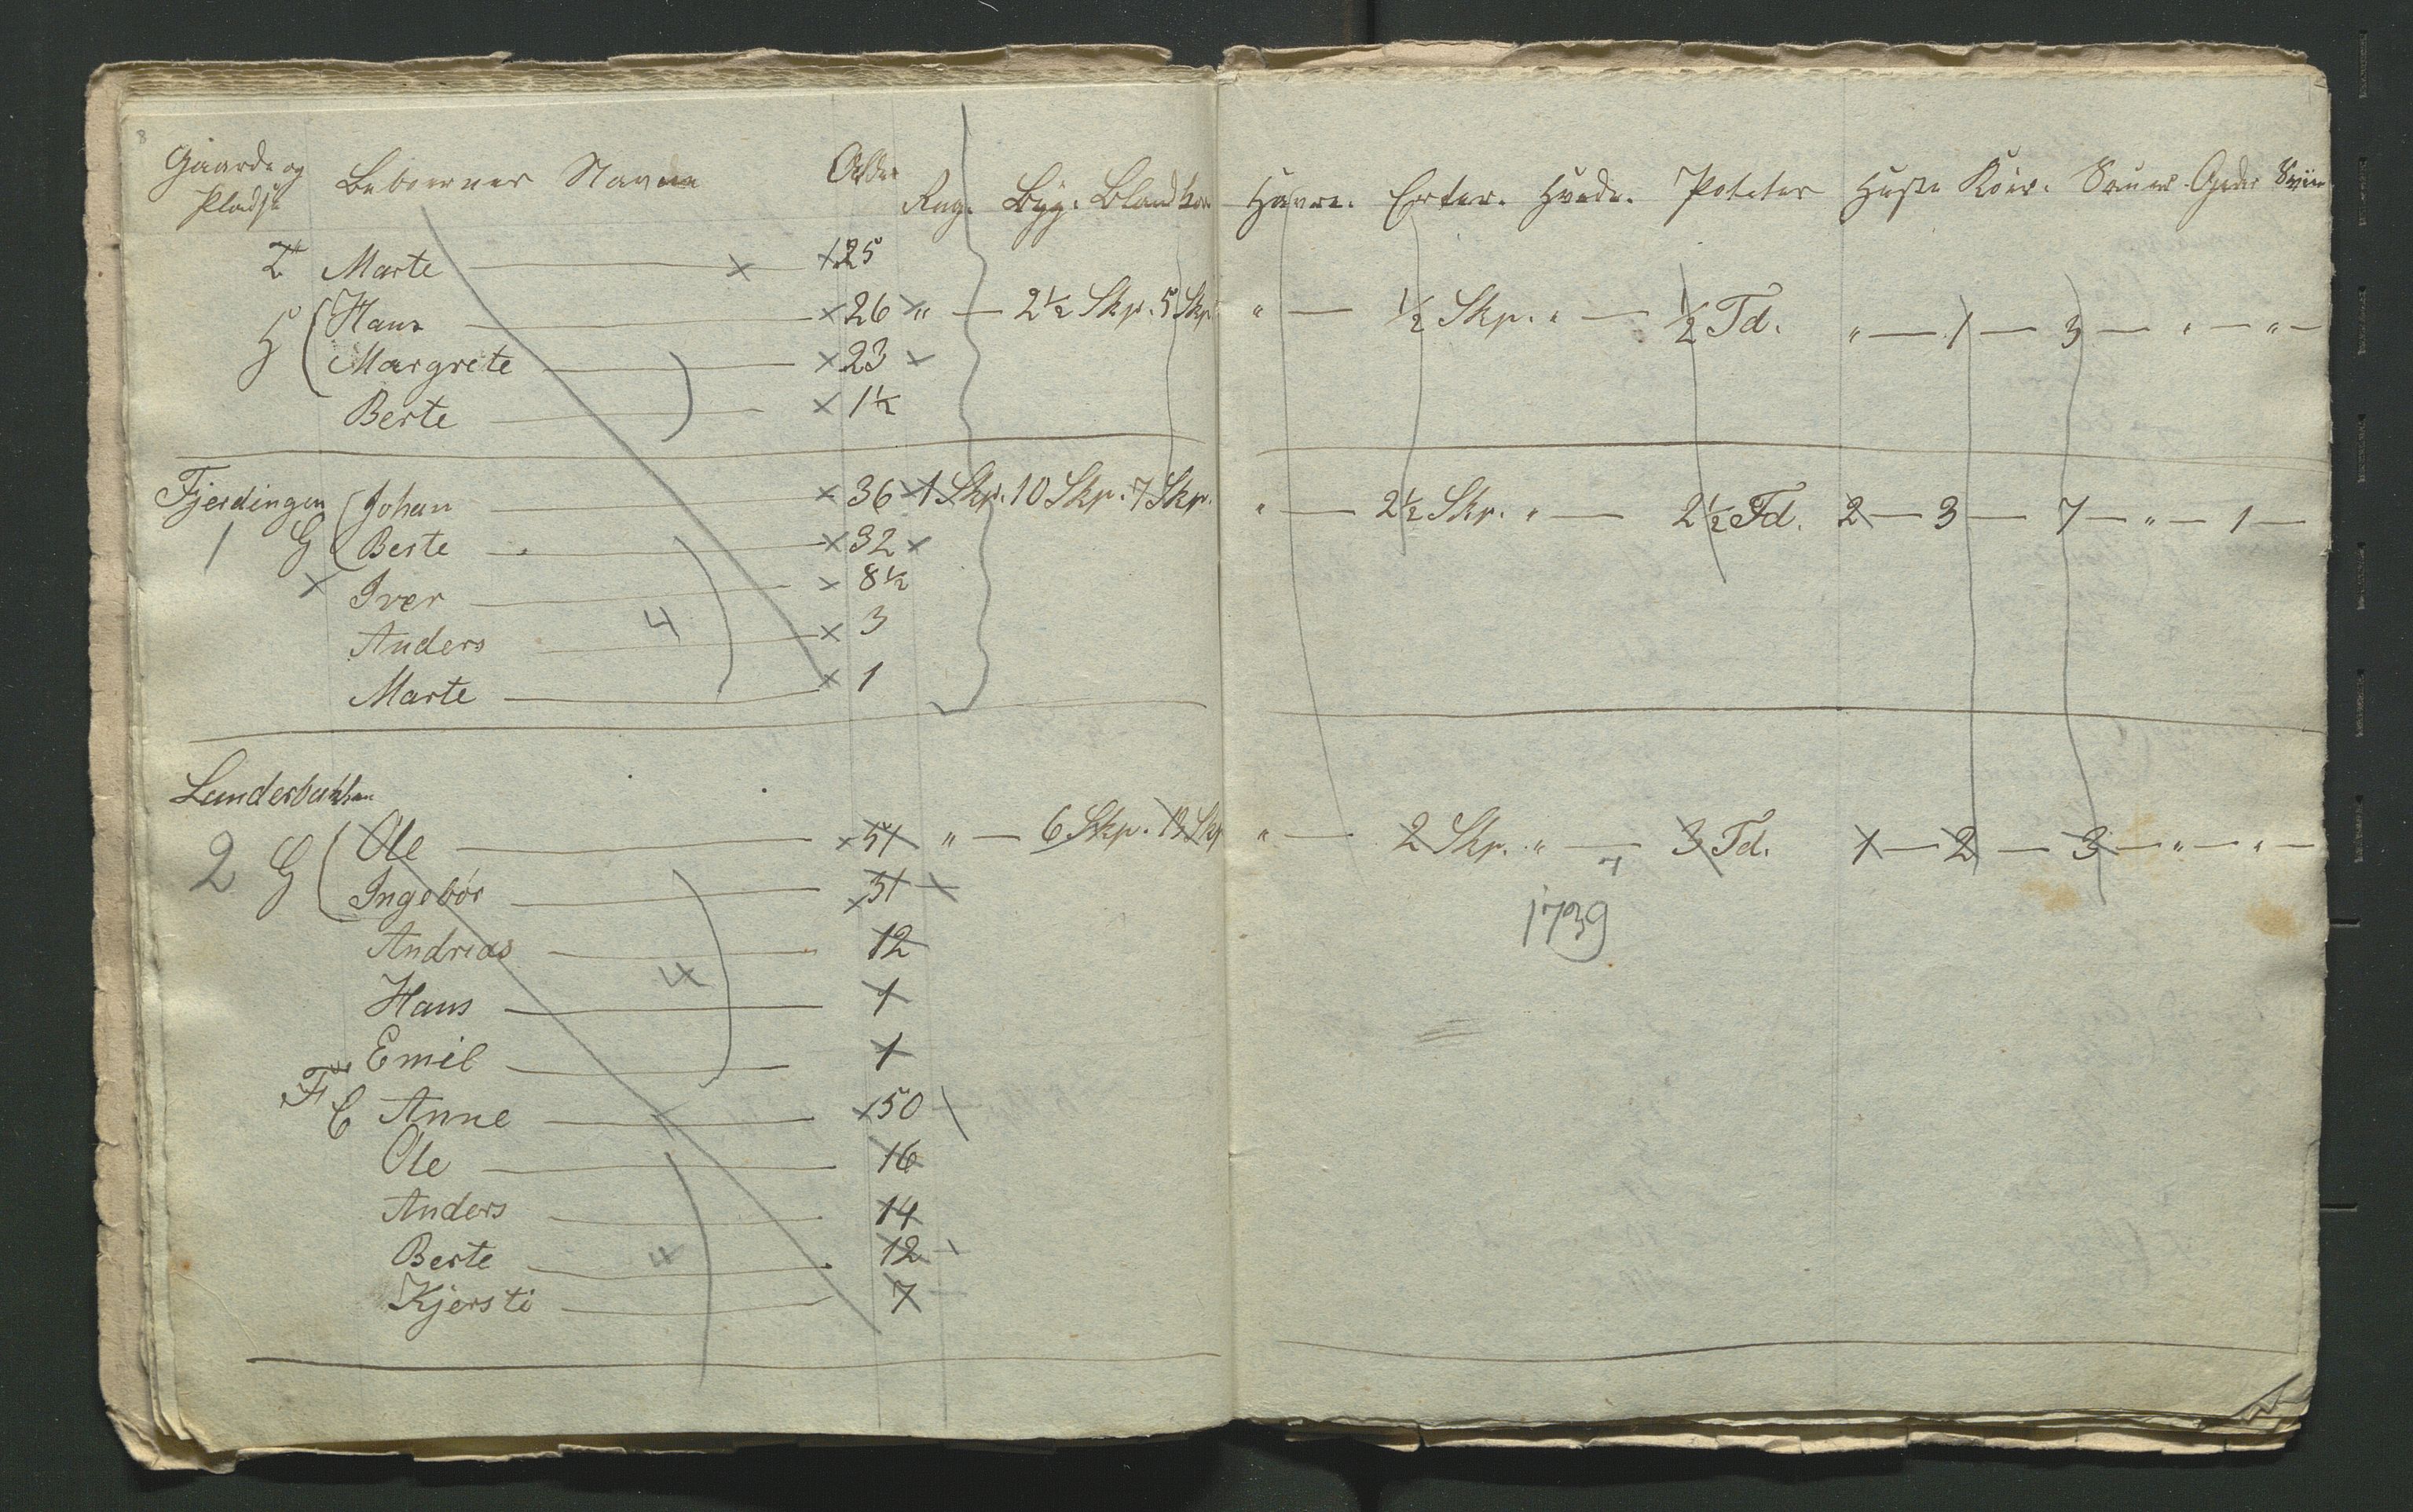 8
Gaarde og Pladse Beboernes Navne Alder Rug. Byg. Blandkorn Havre. Erter. Hvede. Poteter Heste Köer. Sauer. Geder Sviin
Marte x x 25
G Hans x 26 x " — 2½ Skp. 5 Skp. " — ½ Skp. " — ½ Td. " — 1 — 3 — " — " —
Margrete x 23 x
Berte x 1½
Fjerdingen Johan x 36 x 1 Skp. 10 Skp. 7 Skp. " — 2½ Skp. " — 2½ Td. 2 — 3 — 7 — " — 1 —
1 G Berte x 32 x
x Iver x 8½
4 Anders x 3
Marte x 1
Lunderbakken
2 G Ole x 51 " — 6 Skp. 13 Skp " — 2 Skp. " — 3 Td. 1 — 2 — 3 — " — " —
Ingebór x 31 x
1739
Andrias 12
Hans 4 1
Emil 1
E Anne x 50
Ole 16
Anders 14
Berte 4 12
Kjersti 7